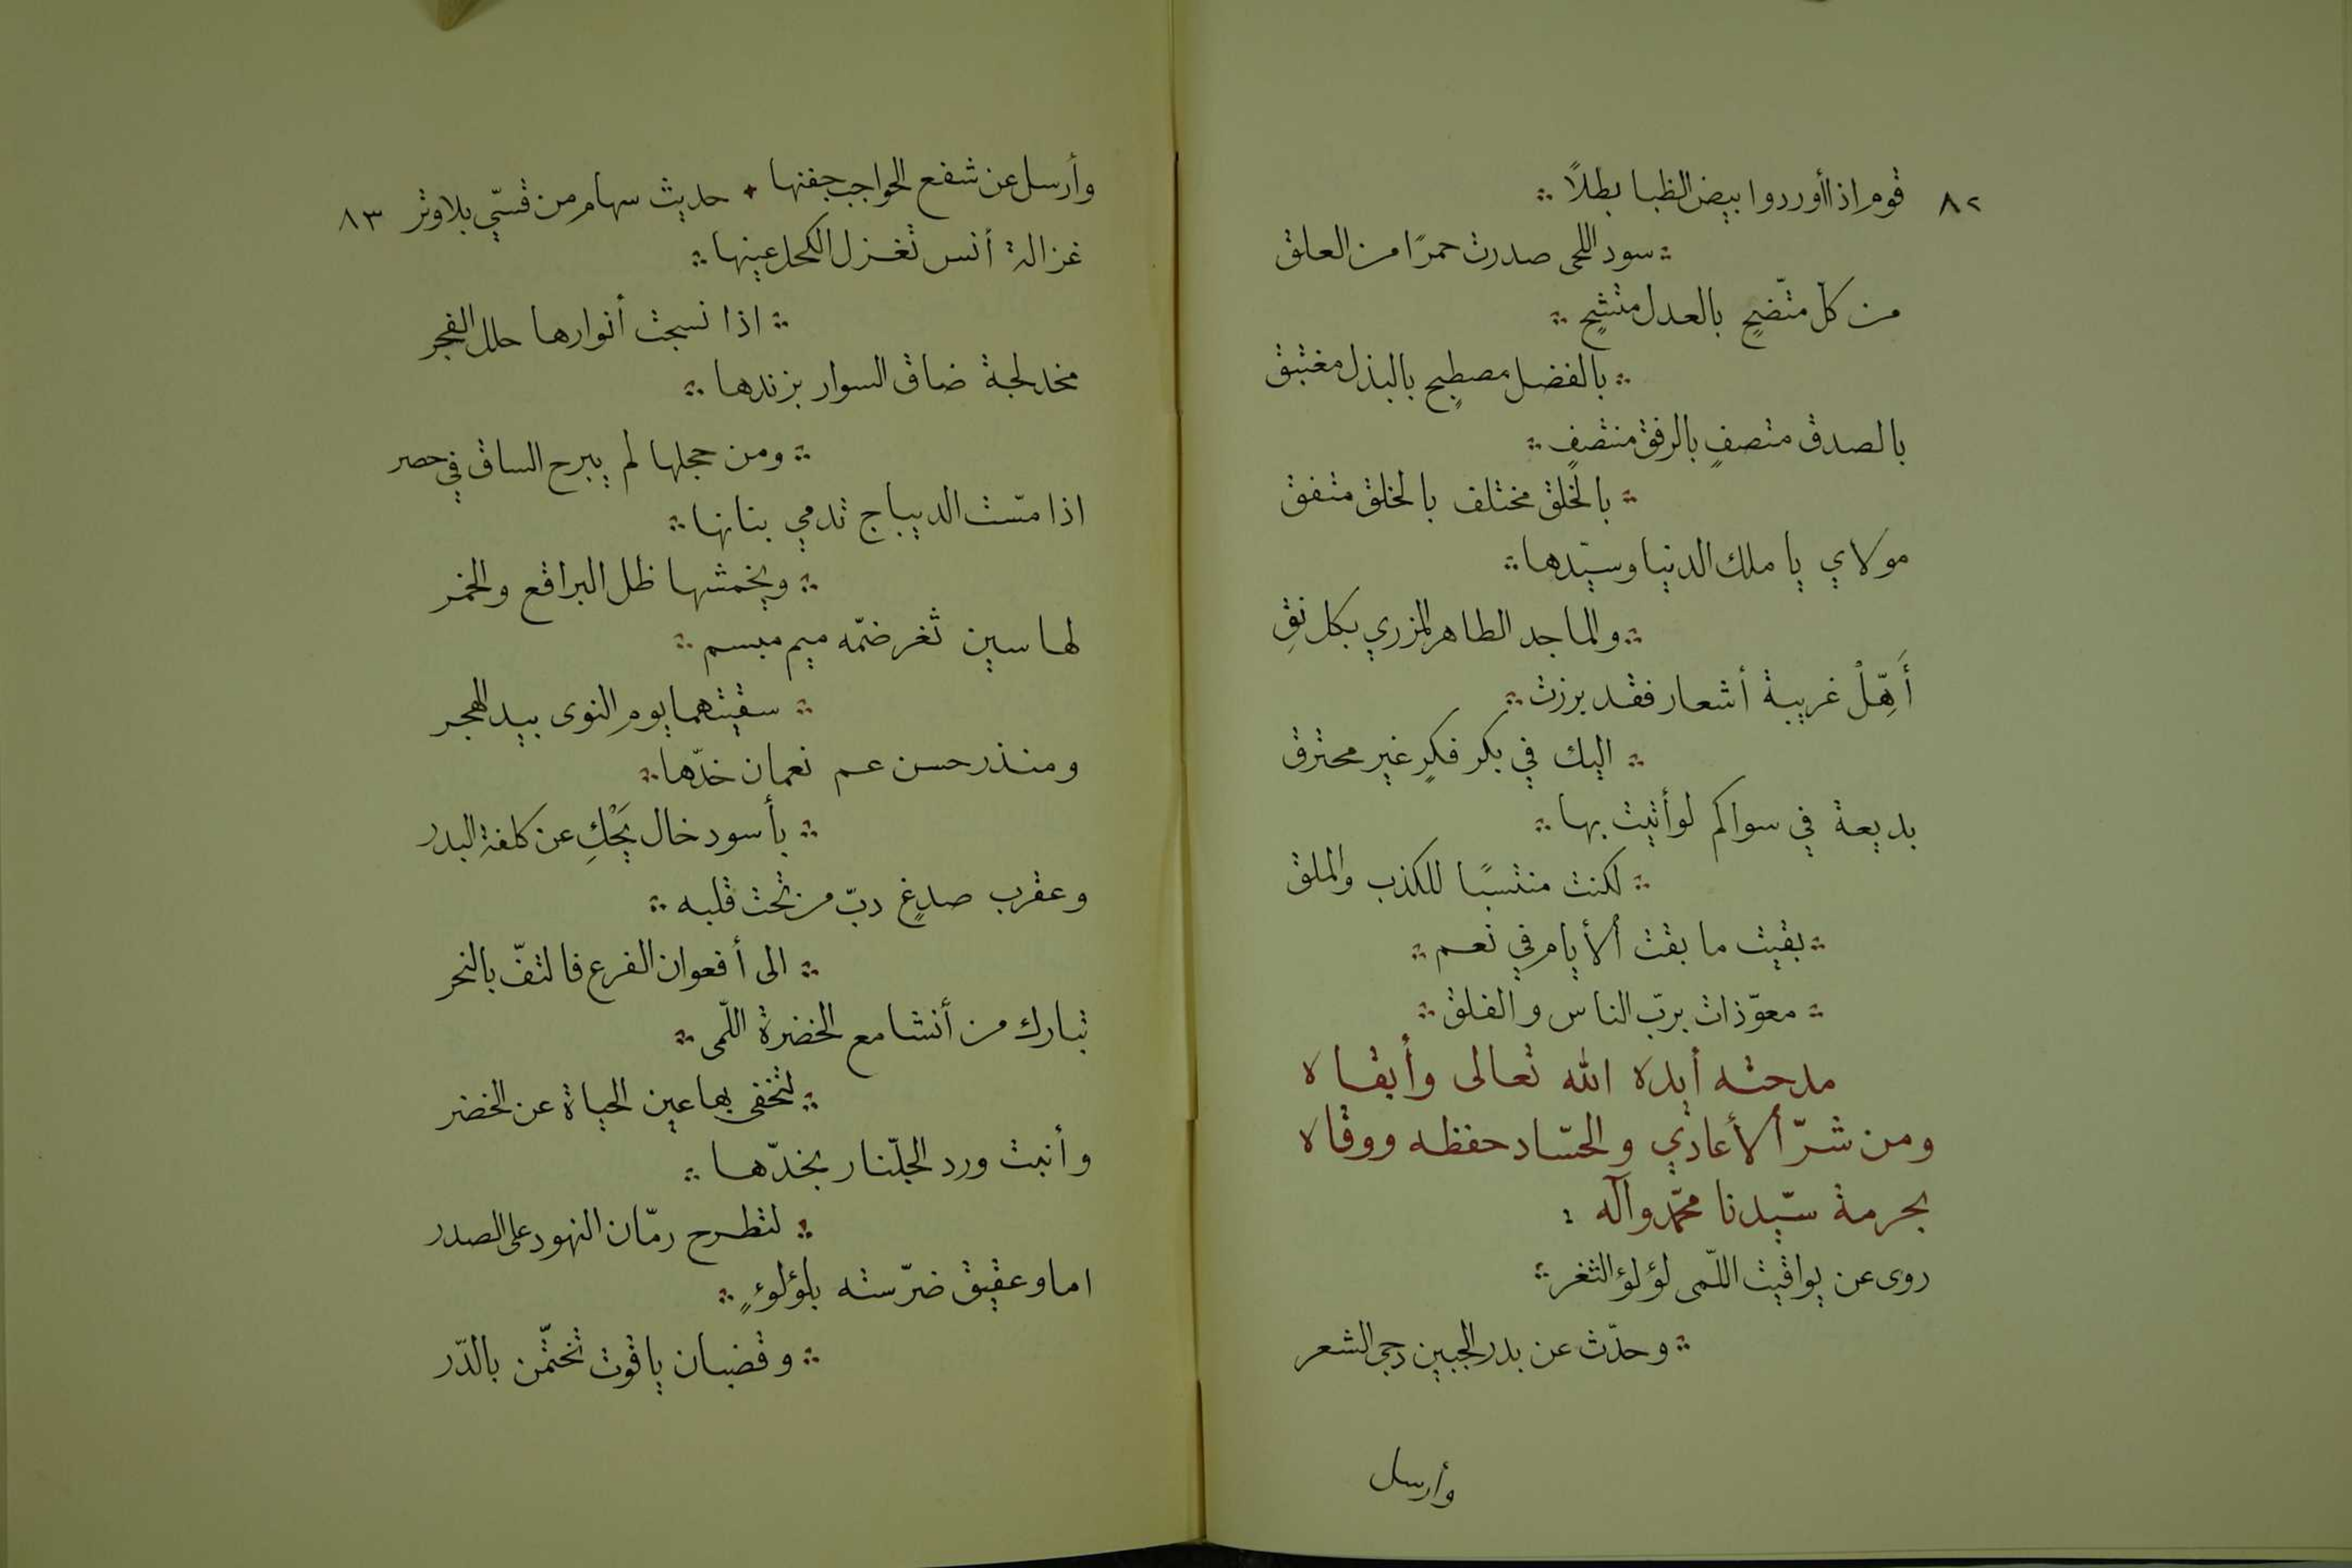 ٨٢ قوم اذا أوردوا بيض الظبا بطلاً
سود اللحى صدرت حمرًا من العلق
من كلّ متّضحٍ بالعدل متشحٍ
بالفضل مصطبحٍ بالبذل مغتبق
بالصدق متصفٍ بالرفق منتصفٍ
بالخلق مختلف بالخلق متفق
مولاي يا ملك الدنيا وسيّدها
والماجد الطاهر المزري بكل نقِ
أَهِّلْ غريبة أشعار فقد برزت
اليك في بكر فكرٍ غير محترق
بديعة في سواكم لو أتيت بها
لكنت منتسبًا للكذب والملق
بقيت ما بقت ألأيام في نعم
معوّذات بربّ الناس والفلق
مدحته أيده الله تعالى وأبقاه
ومن شرّ ألأعادي والحسّاد حفظه ووقاه
بحرمة سيّدنا محمّد وآله
روى عن يواقيت اللّمى لؤلؤ الثغر
وحدّث عن بدر الجبين دجى الشعر
وأرسل
وأرسل عن شفع الحواجب جفنها حديث سهام من قسّي بلا وتر ٨٣
غزالة أنس تغزل الكحل عينها
اذا نسجت أنوارها حلل الفجر
مخدلجة ضاق السوار بزندها
ومن حجلها لم يبرح الساق في حصر
اذا مسّت الديباج تدمي بنانها
ويخمشها ظل البراقع والخمر
لها سين ثغر ضمّه ميم مبسم
سقيتهما يوم النوى بيد الهجر
ومنذر حسن عم نعمان خدّها
بأسود خال يَحْكِ عن كلفة البدر
وعقرب صدغٍ دبّ من تحت قلبه
الى أفعوان الفرع فالتفّ بالنحر
تبارك من أنشا مع الخضرة اللّمى
لتخفى بها عين الحياة عن الخضر
وأنبت ورد الجلّنار بخدّها
لتطرح رمّان النهود على الصدر
اما وعقيق ضرّسته بلؤلوءٍ
وقضبان ياقوت تختّمن بالدّر